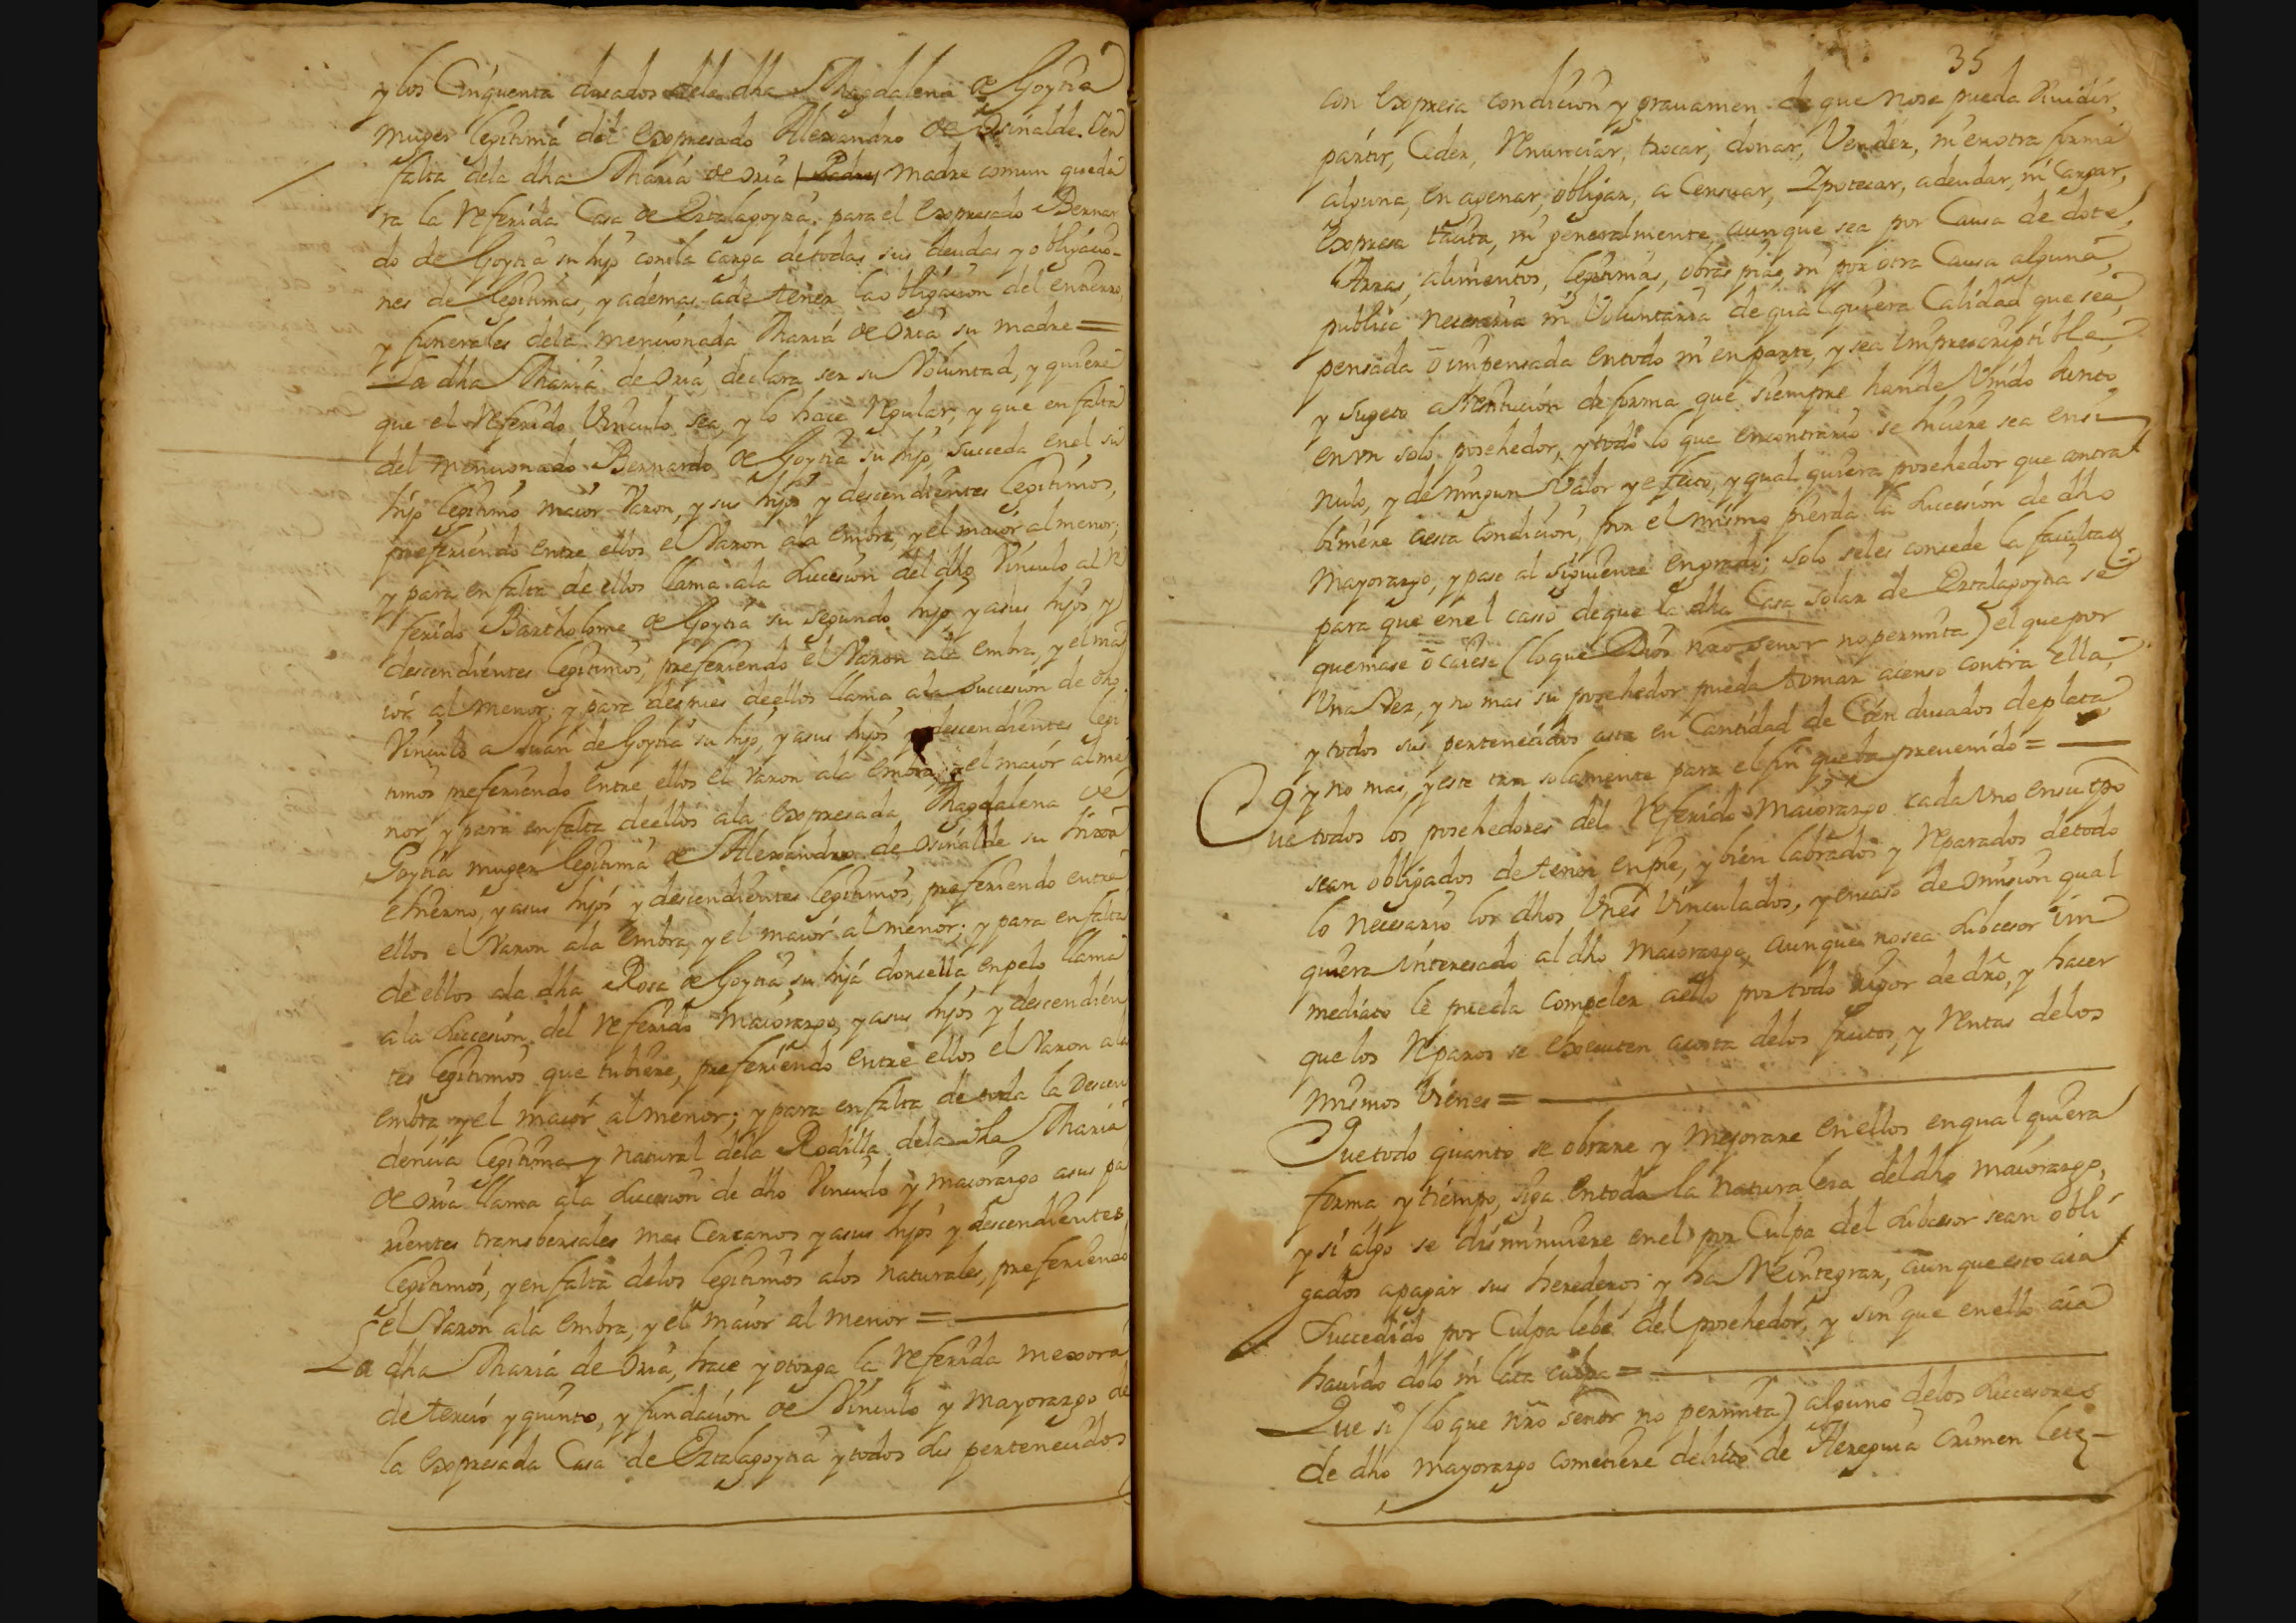 y los Cinquenta ducados dela dha Magdalena de Goytia
muger legitima del expresado Alexandro de Osinalde. Y en
falta dela dha Maria de Oria Padre madre comun queda
ra la referida Casa de Erzalagoytia para el expresado Bernar
do de Goytia su hijo con la carga de todas sus deudas y obligacio-
nes de legitimas, y ademas a de tener la obligacion del entierro,
y funerales dela mencionada Maria de Oria su madre =
La dha Maria de Oria, declara ser su Voluntad, y quiere
que el referido Vinculo sea, y lo hace regular, y que en falta
del mencionado Bernardo de Goytia su hijo, succeda en el, su
hijo legitimo maior Varon, y sus hijos y descendientes legitimos,
prefiriendo entre ellos el Varon ala embra, y el maior al menor;
y para en falta de ellos llama ala succesion del dho Vinculo al re
ferido Bartholome de Goytia su segundo hijo y asus hijos y
descendientes legitimos, prefiriendo el Varon ala embra, y el ma
ior al menor; y para despues deellos llama ala succesion de dho
Vinculo a Juan de Goytia su hijo, y asus hijos y descendientes legi
timos prefiriendo entre ellos el Varon ala embra, y el maior al me
nor, y para en falta deellos ala expresada Magdalena de
Goytia muger legitima de Alexandro de Osinalde su hixa
e hierno, y asus hijos y descendientes legitimos, prefiriendo entre
ellos el Varon ala embra, y el maior al menor; y para en falta
de ellos ala dha Rosa de Goytia su hija doncella en pelo llama
a la succesion del referido maiorazgo, y asus hijos y descendien
tes legitimos que tubiere, prefiriendo entre ellos el Varon ala
embra y el maior al menor; y para en falta de toda la Descen
dencia legitima y natural dela Rodilla dela dha Maria
de Oria llama ala succesion de dho Vinculo y maiorazgo asus pa
rientes transbersales mas Cercanos y asus hijos y descendientes
legitimos, y en falta delos legitimos alos naturales, prefiriendo
el Varon ala embra, y el maior al menor =
La dha Maria de Oria, hace y otorga la referida mexora
de tercio y quinto, y fundacion de Vinculo y mayorazgo de
la expresada Casa de Erzalagoytia y todos sus pertenecidos
35
con expresa condicion y gravamen de que nose pueda dividir,
partir, Ceder, renunciar, trocar, donar, Vender, ni en otra forma
alguna, en agenar, obligar, a Censuar, Ypotecar, adeudar, ni Cargar,
Expresa tacita, ni generalmente, aunque sea por Causa de dote,
Arras, alimentos, legitimas, obras pias, ni por otra Causa alguna,
publica necesaria ni Voluntaria de qual quiera Calidad que sea,
pensada o impensada en todo ni en parte, y sea Imprescriptible,
y sugeto a restitucion de forma que siempre hande Unido Junto
en vn solo posehedor, y todo lo que en contrario se hiciere sea en si
nulo, y de ningun Valor y efecto, y qual quiera posehedor que contra
biniere aesta condicion, por el mismo pierda la succesion de dho
Mayorazgo, y pase al siguiente en grado; solo seles concede la facultad
para que en el casso de que la dha Casa solar de Erzalagoytia se
quemase o caiese (lo que Dios nro Senor no permita) el que por
Una Vez, y no mas su posehedor pueda tomar acenso contra ella,
y todos sus pertenecidos asta en Cantidad de Cien ducados de plata
y no mas, y este tan solamente para el fin que ba prevenido =
Que todos los posehedores del referido Maiorazgo cada Uno en su tpo
sean obligados de tener en pie, y bien labrados y reparados de todo
lo necesario los dhos Vnes Vinculados, y en caso de omision qual
quiera interesado al dho Maiorazgo, aunque no sea subcesor in
mediato le pueda compeler aello por todo rigor de dro, y hacer
que los reparos se executen acosta delos frutos, y rentas delos
mismos Vienes =
Que todo quanto se obrare y mejorare en ellos en qual quiera
forma y tiempo, siga en toda la naturaleza del dho maiorazgo,
y si algo se disminuiere en el por Culpa del subcesor sean obli
gados apagar sus herederos y ha reintegrar, aunque esto aia
succedido por Culpa lebe del posehedor, y sin que en ello aia
havido dolo ni lata culpa =
Que si (lo que nro Senor no permita) alguno delos succesores
de dho mayorazgo cometiere delito de Heregia Crimen lese-